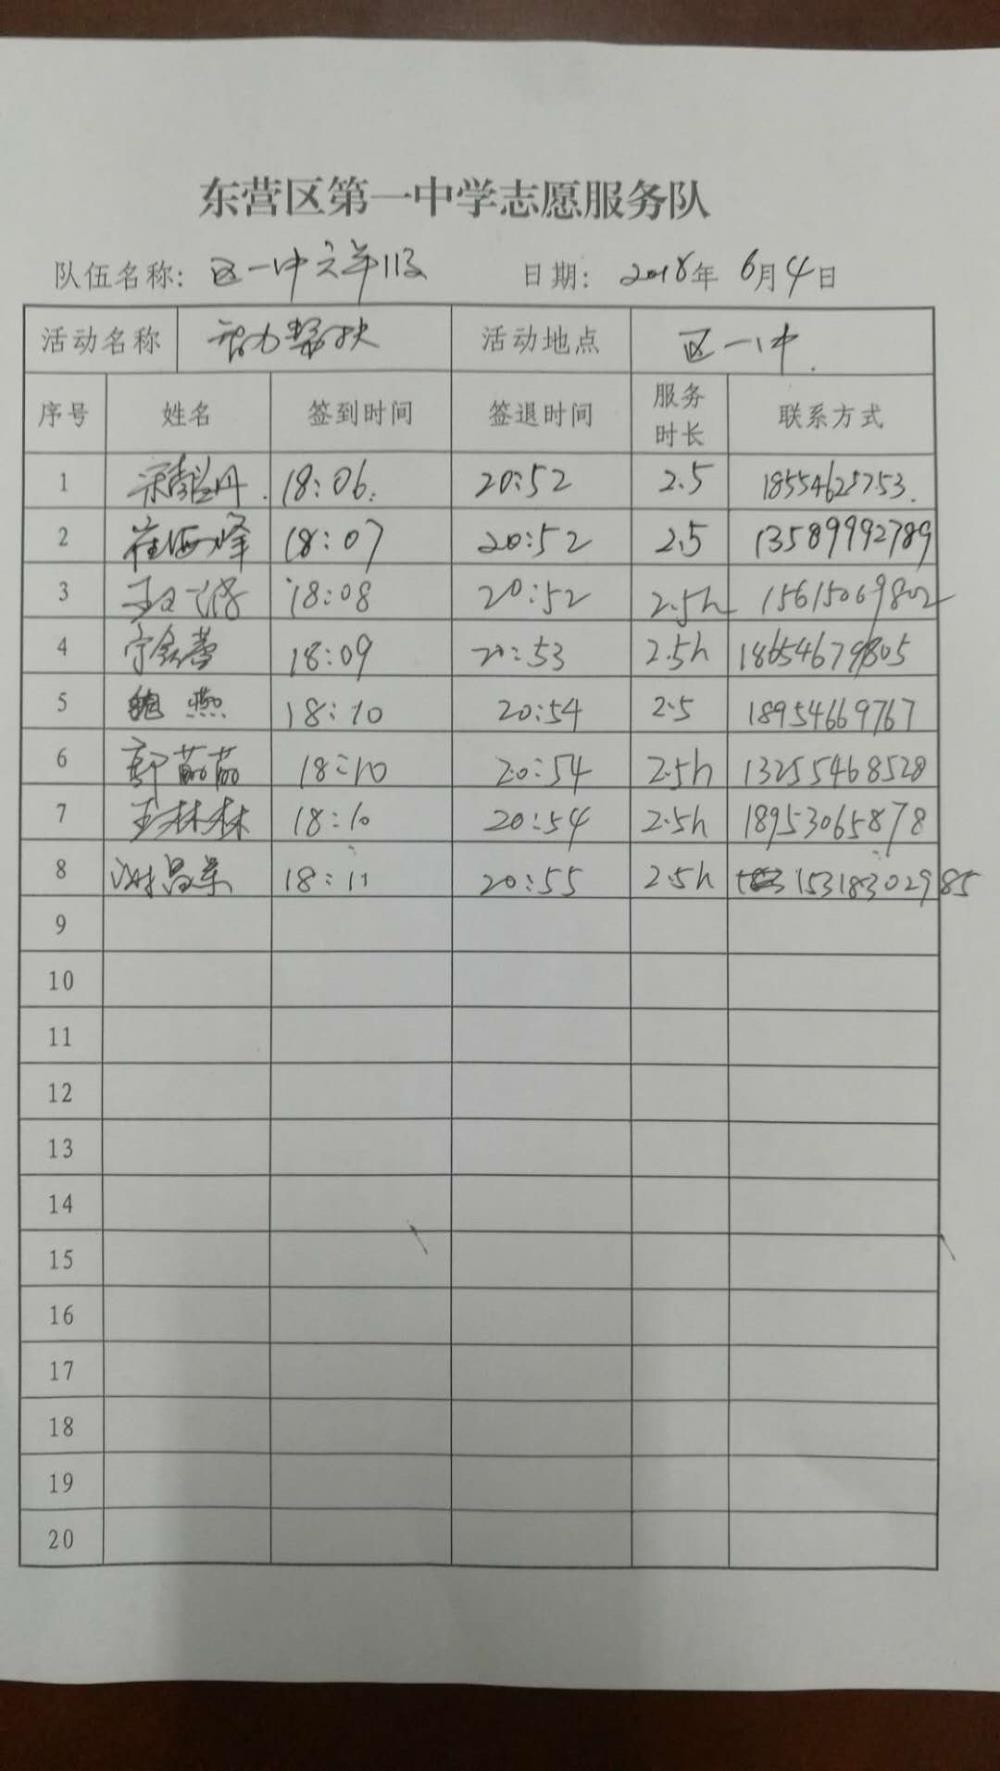 东营区第一中学志愿服务队
队伍名称: 区一中六年11级 日期: 2018年 6月4日
活动名称 智力帮扶 活动地点 区一中.
序号 姓名 签到时间 签退时间 服务时长 联系方式
1 18:06. 20:52 2.5 18554625753.
2 崔海峰 18:07 20:52 2.5 13589992789
3 18:08 20:52 2.5h 15615069802
4 18:09 20:53 2.5h 18654679805
5 燕 18:10 20:54 2.5 18954669767
6 郭茹茹 18:10 20:54 2.5h 13255468528
7 王林林 18:10 20:54 2.5h 18953065878
8 18:11 20:55 2.5h 15318302985
9
10
11
12
13
14
15
16
17
18
19
20